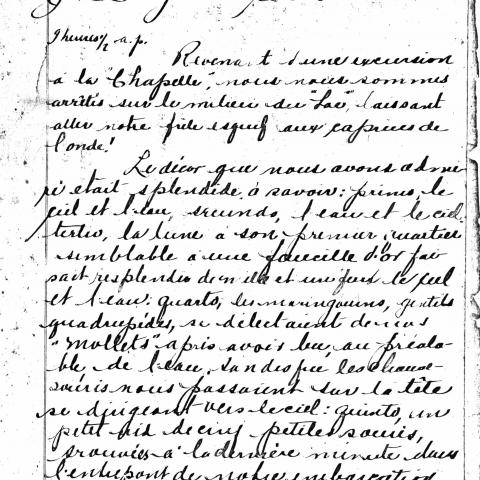 9 heures 1/2 a.p.
Revenant d'une excursion
à la "Chapelle", nous nous sommes
arrêtés sur le milieu du "Lac", laissant
aller notre frêle esquif aux caprices de
l'onde!
Le décor que nous avons admi
ré était splendide, à savoir: primo, le
ciel et l'eau, secundo, l'eau et le ciel,
tertio, la lune à son premier quartier
semblable à une faucille d'or fai
sait resplendir de mille et un feux le ciel
et l'eau: quarto, les maringouins, gentils
quadrupèdes, se délectaient de nos
"Mollets" après avoir bu, au préala-
ble de l'eau, sandesfié, les chauve-
souris nous passaient sur la tête
se dirigeant vers le ciel: quinto, un
petit nid de cinq petites souris,
trouvées à la dernière minute dans
l'entrepont de notre embarcation